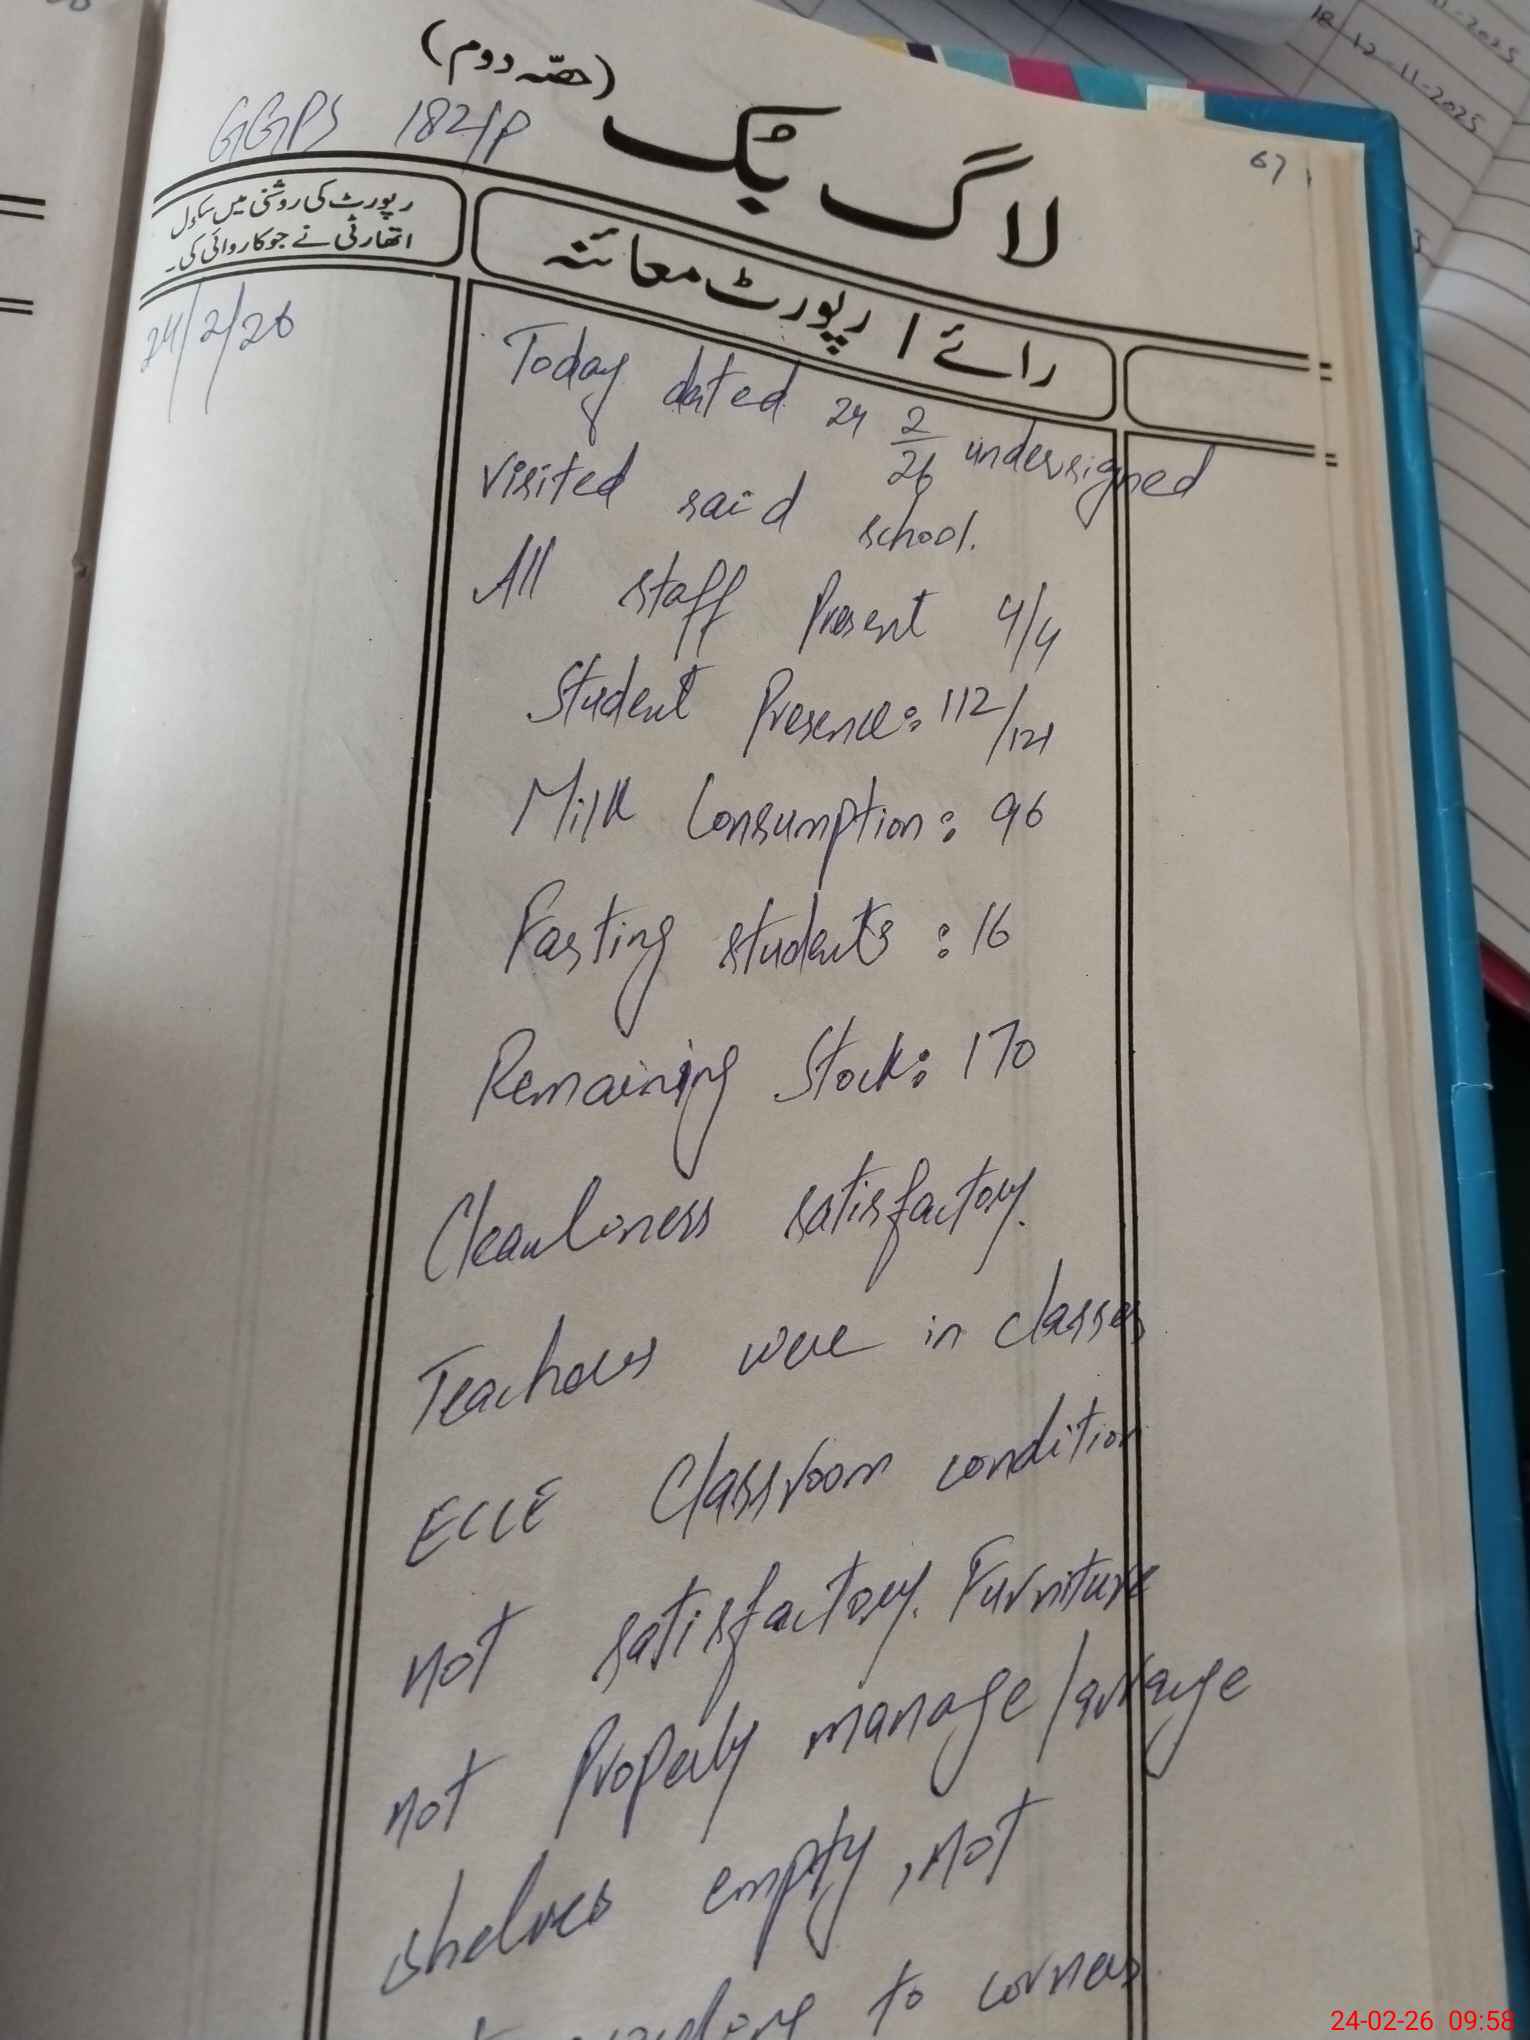 (حصہ دوم)
GGPS 182/P
لاگ بک
67
رپورٹ کی روشنی میں سکول
اتھارٹی نے جو کاروائی کی۔
رائے / رپورٹ معائنہ
24/2/26
Today dated 24 2/26 undersigned
visited said school.
All staff Present 4/4
Student Presence: 112/121
Milk Consumption: 96
Fasting students: 16
Remaining Stock: 170
Cleanliness satisfactory.
Teachers were in classes
ECCE Classroom condition
not satisfactory. Furniture
not Properly manage/arrange
shelves empty, not
to corners
18
12-11-2025
24-02-26 09:58